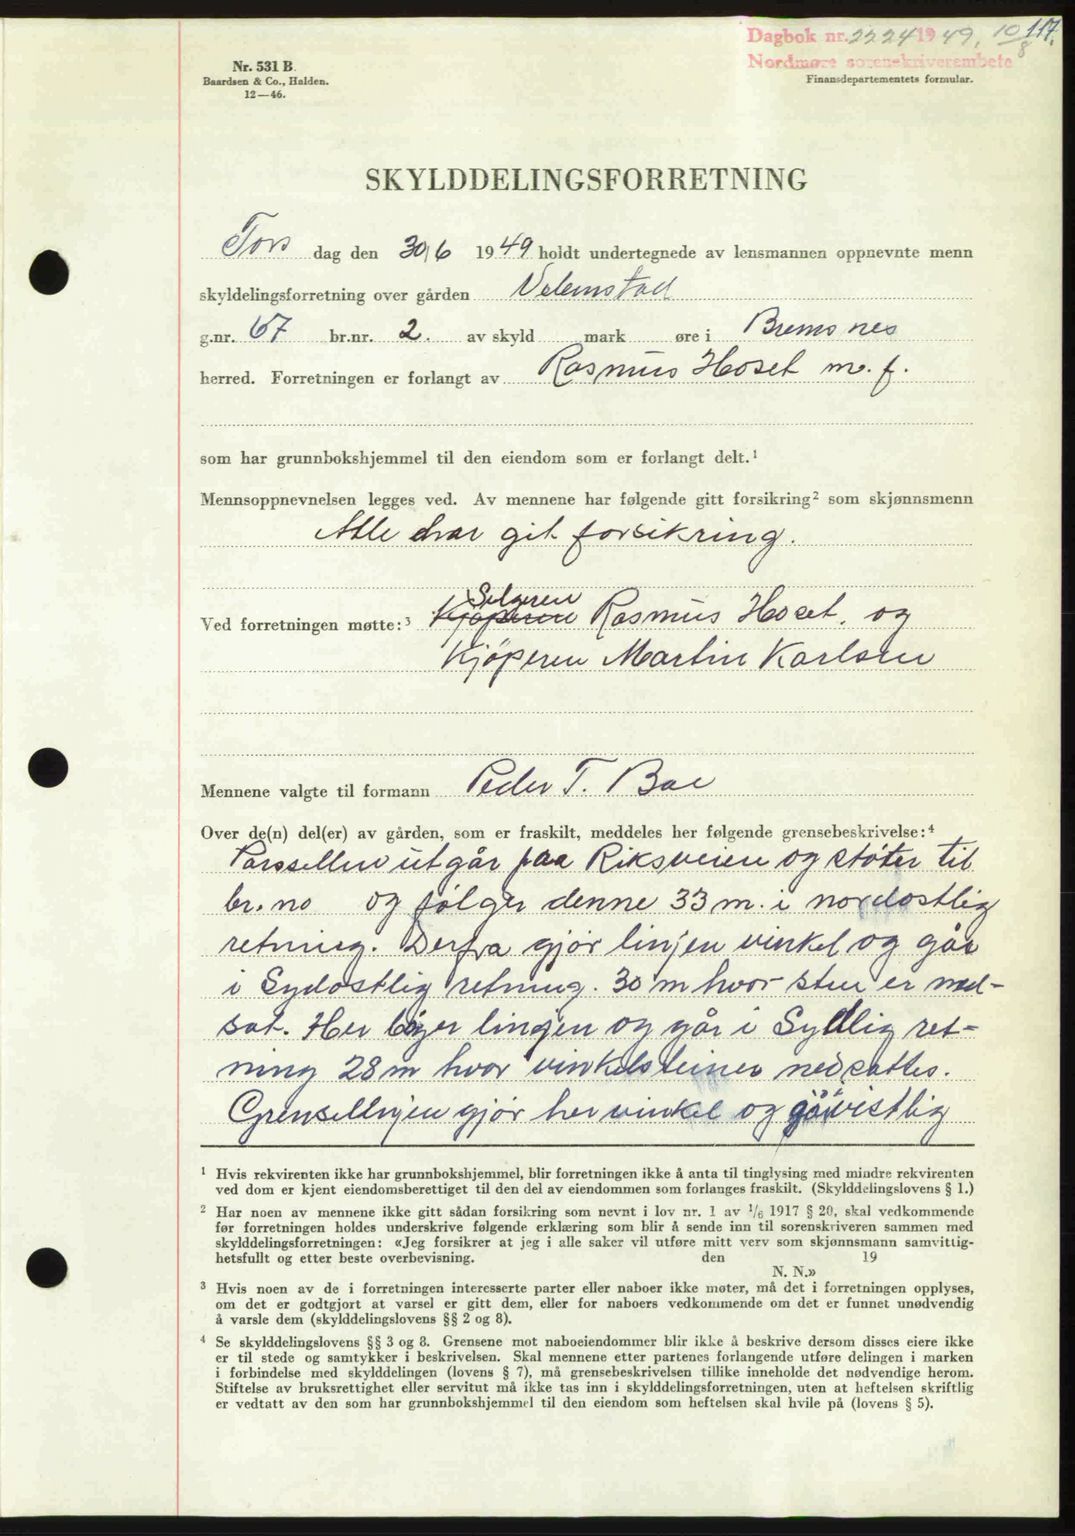 117.
Dagbok nr. 2224 1949. 10/8
Nordmøre sorenskriverembete
Nr. 531 B.
Baardsen & Co., Halden.
12—46.
Finansdepartementets formular.
SKYLDDELINGSFORRETNING
Tors dag den 30/6 1949 holdt undertegnede av lensmannen oppnevnte menn
skyldelingsforretning over gården Vebenstad
g.nr. 67 br.nr. 2. av skyld mark øre i Bremsnes
herred. Forretningen er forlangt av Rasmus Hoset m. f.
som har grunnbokshjemmel til den eiendom som er forlangt delt.¹
Mennsoppnevnelsen legges ved. Av mennene har følgende gitt forsikring² som skjønnsmenn
Alle har git forsikring.
Selgeren
Ved forretningen møtte:³ Kjøperen Rasmus Hoset. og
Kjøperen Martin Karlsen
Mennene valgte til formann Peder T. Boe
Over de(n) del(er) av gården, som er fraskilt, meddeles her følgende grensebeskrivelse:⁴
Parsellen utgår paa Riksveien og støter til
br. no og følger denne 33 m. i nordostlig
retning. Derfra gjør linjen vinkel og går
i Sydostlig retning. 30 m hvor sten er ned-
sat. Her bøyer linjen og går i Sydlig ret-
ning 28 m hvor vinkelsteiner nedsattes.
Grenselinjen gjør her vinkel og går vestlig
¹ Hvis rekvirenten ikke har grunnbokshjemmel, blir forretningen ikke å anta til tinglysing med mindre rekvirenten
ved dom er kjent eiendomsberettiget til den del av eiendommen som forlanges fraskilt. (Skylddelingslovens § 1.)
² Har noen av mennene ikke gitt sådan forsikring som nevnt i lov nr. 1 av 1/6 1917 § 20, skal vedkommende
før forretningen holdes underskrive følgende erklæring som blir å sende inn til sorenskriveren sammen med
skylddelingsforretningen: «Jeg forsikrer at jeg i alle saker vil utføre mitt verv som skjønnsmann samvittig-
hetsfullt og etter beste overbevisning. den 19
N. N.»
³ Hvis noen av de i forretningen interesserte parter eller naboer ikke møter, må det i forretningen opplyses,
om det er godtgjort at varsel er gitt dem, eller for naboers vedkommende om det er funnet unødvendig
å varsle dem (skylddelingslovens §§ 2 og 8).
⁴ Se skylddelingslovens §§ 3 og 8. Grensene mot naboeiendommer blir ikke å beskrive dersom disses eiere ikke
er til stede og samtykker i beskrivelsen. Skal mennene etter partenes forlangende utføre delingen i marken
i forbindelse med skylddelingen (lovens § 7), må grensebeskrivelsen tillike inneholde det nødvendige herom.
Stiftelse av bruksrettighet eller servitut må ikke tas inn i skylddelingsforretningen, uten at heftelsen skriftlig
er vedtatt av den som har grunnbokshjemmel til den eiendom som heftelsen skal hvile på (lovens § 5).